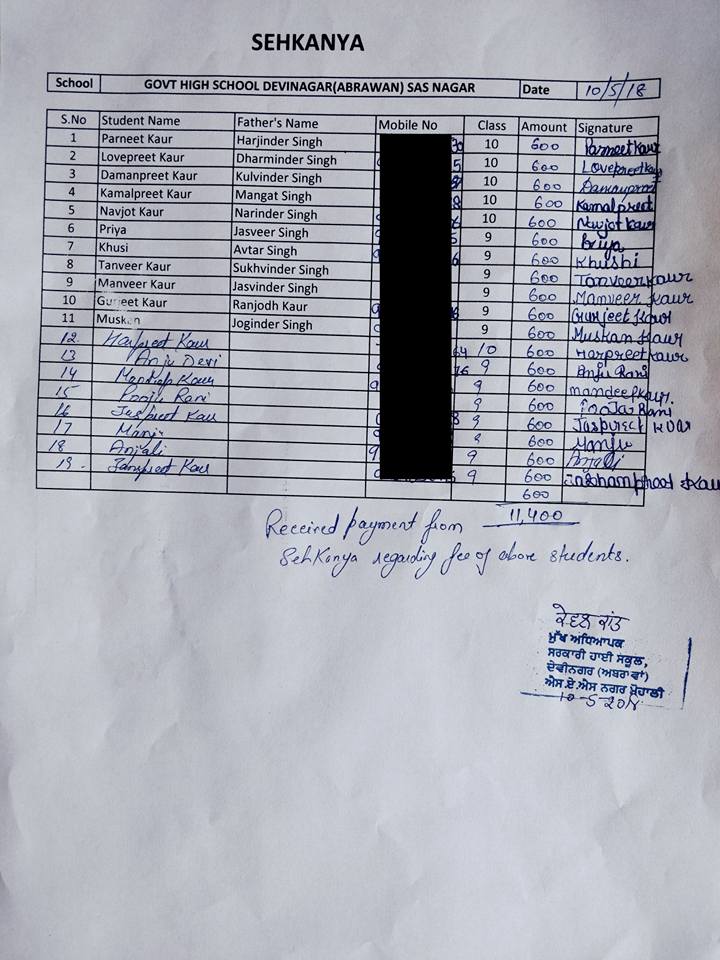 SEHKANYA
School GOVT HIGH SCHOOL DEVINAGAR(ABRAWAN) SAS NAGAR Date 10/5/18
S.No Student Name Father's Name Mobile No Class Amount Signature
1 Parneet Kaur Harjinder Singh 10 600 Parneet Kaur
2 Lovepreet Kaur Dharminder Singh 5 10 600 Lovepreet Kaur
3 Damanpreet Kaur Kulvinder Singh 10 600
4 Kamalpreet Kaur Mangat Singh 8 10 600 Kamalpreet
5 Navjot Kaur Narinder Singh 10 600 Navjot Kaur
6 Priya Jasveer Singh 5 9 600 Priya
7 Khusi Avtar Singh 6 9 600 Khushi
8 Tanveer Kaur Sukhvinder Singh 9 600 Tanveer Kaur
9 Manveer Kaur Jasvinder Singh 9 600 Manveer Kaur
10 Gurjeet Kaur Ranjodh Kaur 9 600 Gurjeet Kaur
11 Muskan Joginder Singh 9 600 Muskan Kaur
12. Harpreet Kaur 64 10 600 Harpreet Kaur
13 Anju Devi 76 9 600 Anju Rani
14 Mandeep Kaur 9 9 600 mandeep kaur.
15 Pooja Rani 9 600 Pooja Rani
16 Jaspreet Kaur 8 9 600 Jaspreet Kaur
17 Manju 9 600 Manju
18 Anjali 9 9 600 Anjali
19. Kaur 9 600 Kaur
11,400
Received payment from
SehKanya regarding fee of above students.
ਕੇਵਲ ਕਾਂਤ
ਮੁੱਖ ਅਧਿਆਪਕ
ਸਰਕਾਰੀ ਹਾਈ ਸਕੂਲ,
ਦੇਵੀਨਗਰ (ਅਬਰਾਵਾਂ)
ਐਸ.ਏ.ਐਸ ਨਗਰ ਮੋਹਾਲੀ
10-5-2018